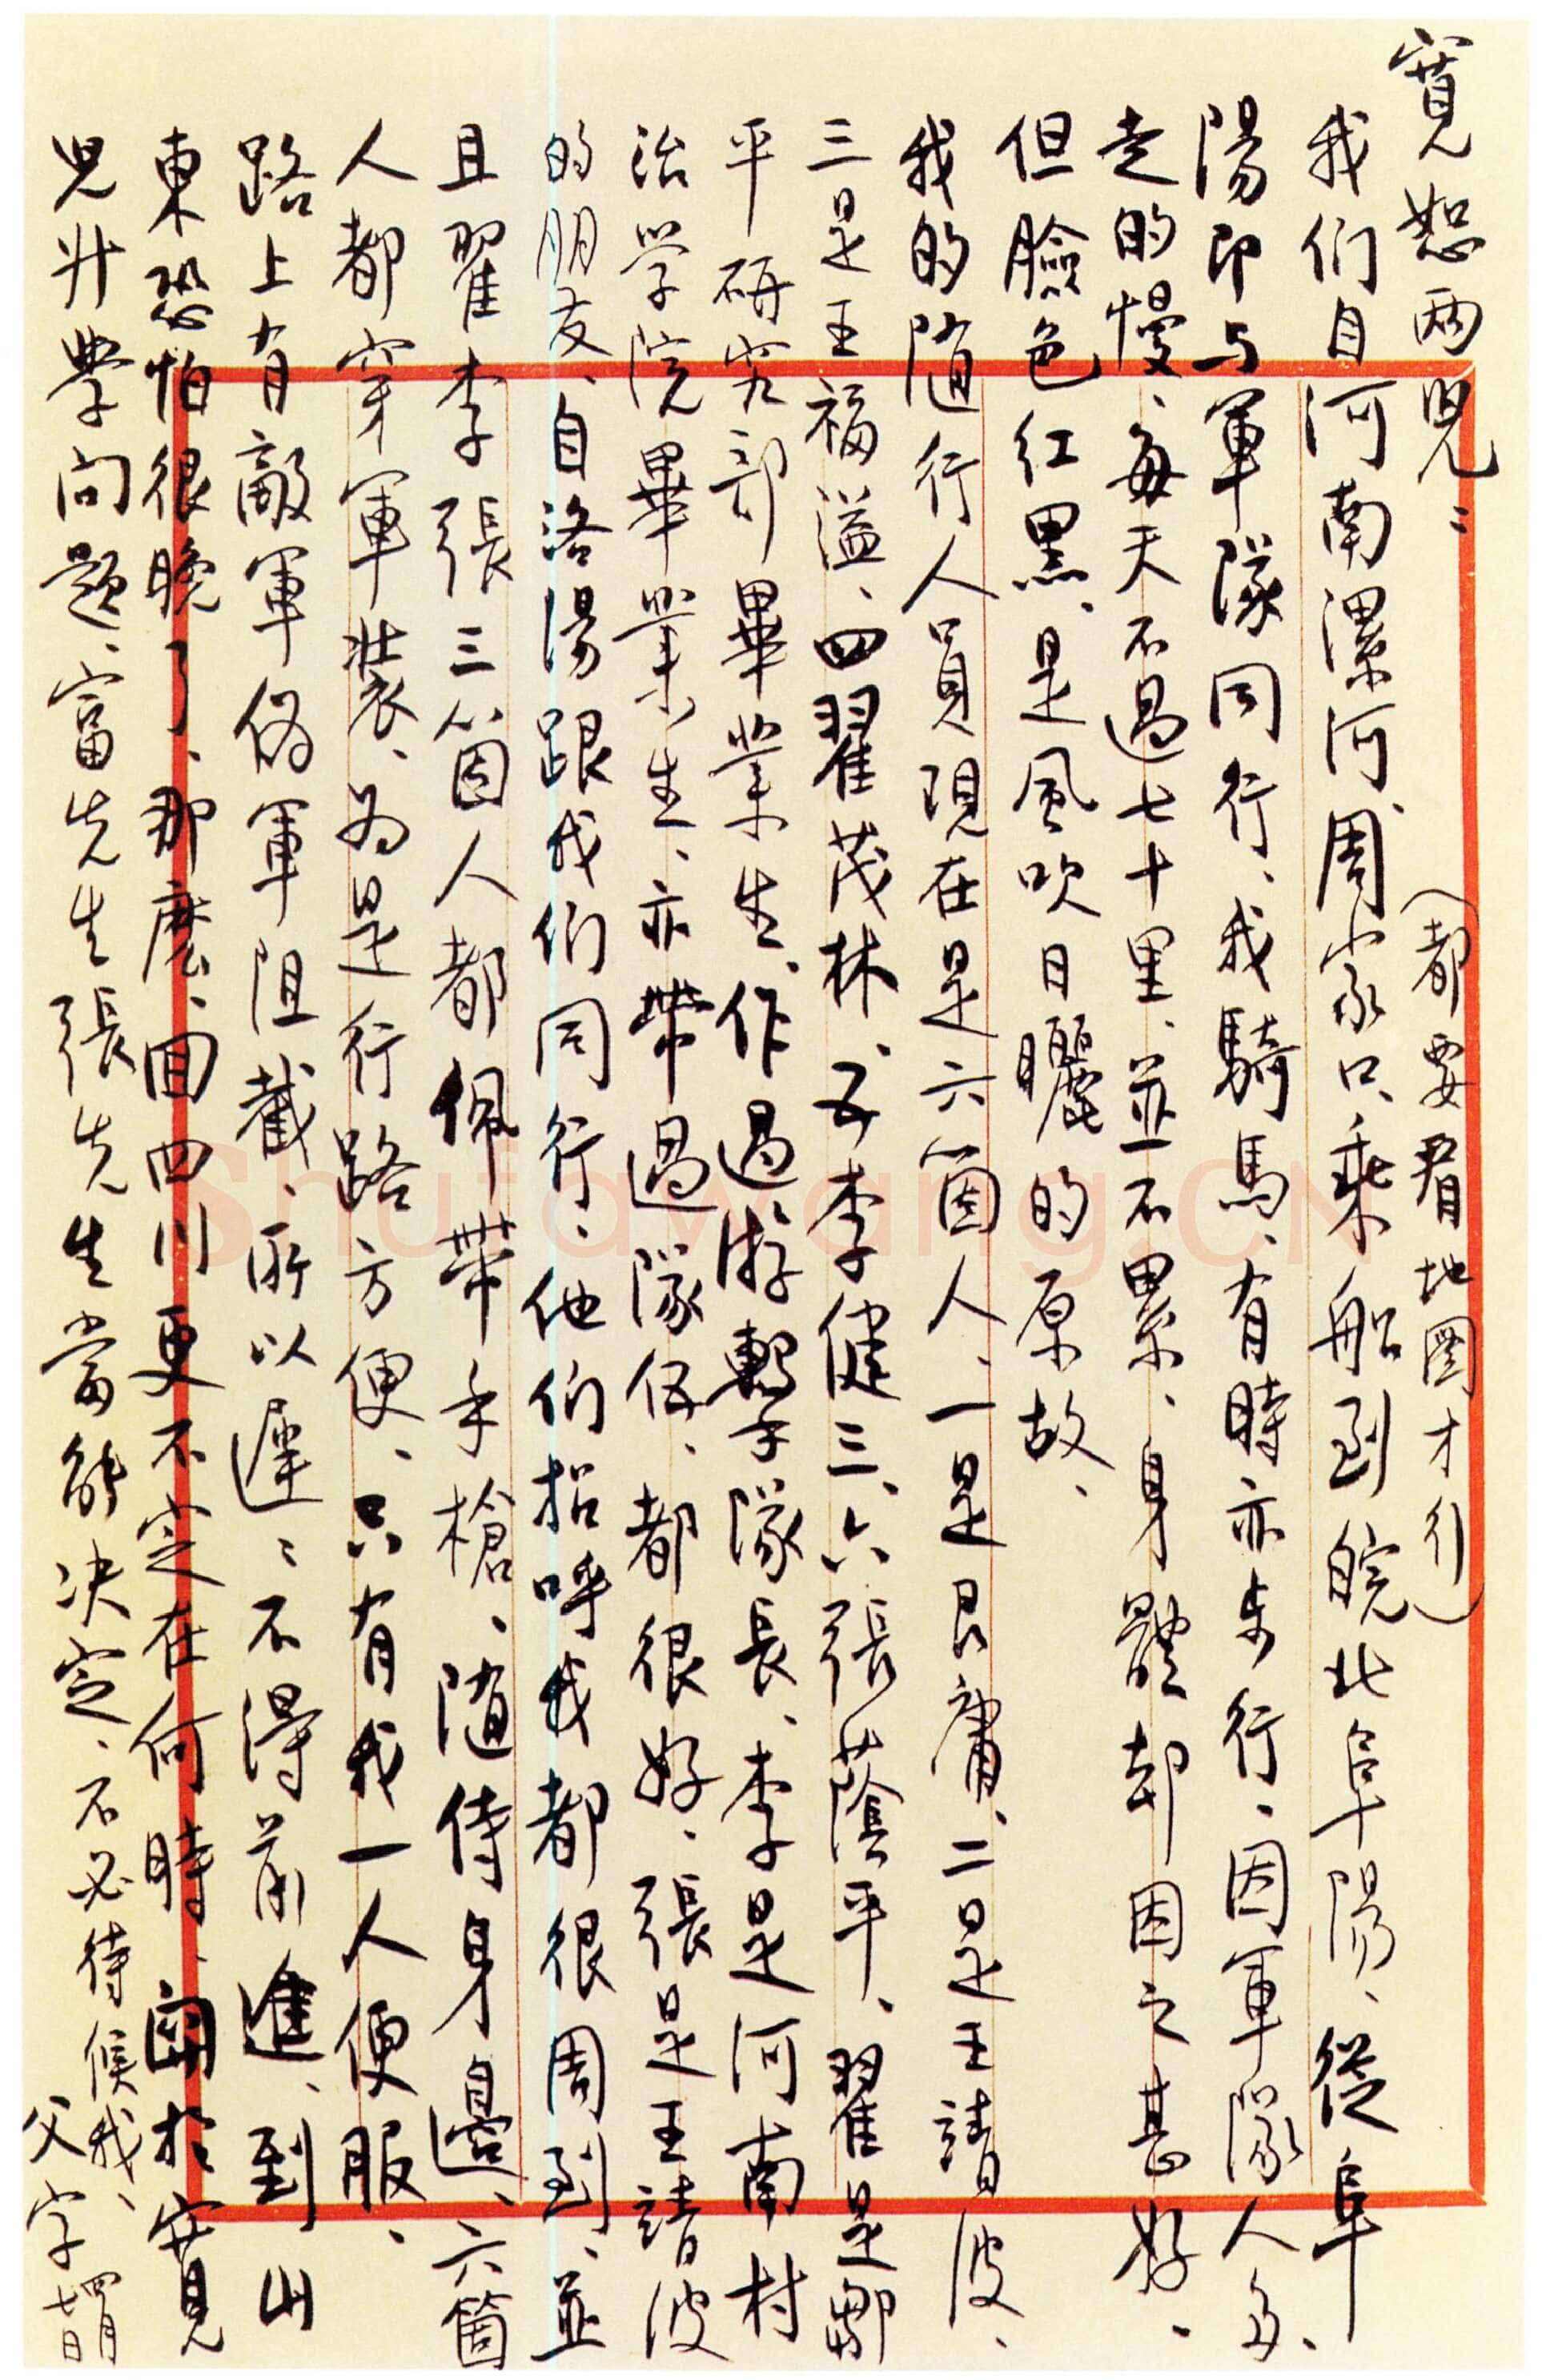 寬恕兩兒：（都要看地圖才行）
我们自河南漯河、周家口、乘船到皖北阜陽、從阜
陽即与軍隊同行、我騎馬、有時亦步行、因軍隊人多、
走的慢、每天不過七十里、並不累、身體却因之甚好。
但臉色红黑、是風吹日曬的原故、
我的随行人員現在是六箇人、一是艮庸、二是王靖波、
三是王福溢、四翟茂林、五李健三、六張蔭平、翟是鄒
平研究部畢業生、作過游擊隊長、李是河南村
治学院畢業生、亦帶過隊伍、都很好、張是王靖波
的朋友、自洛陽跟我们同行、他们招呼我都很周到、並
且翟李張三箇人都佩帶手槍、随侍身邊、六箇
人都穿軍裝、为是行路方便、只有我一人便服、
路上有敵軍伪軍阻截、所以遲遲不得前進、到山
東恐怕很晚了、那麽、回四川更不定在何時、関於寬
兒升學问題、富先生張先生當能决定、不必待候我、
父字
四月七日
Shufawang.CN